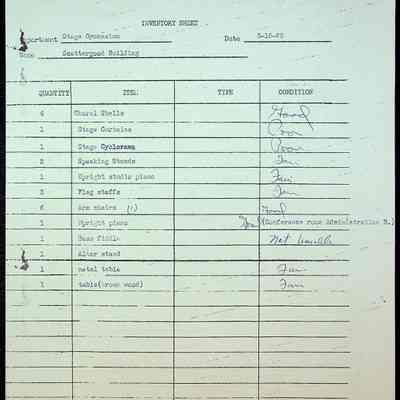 INVENTORY SHEET
Department Stage Gymnasium Date
Name Scattergood Building
QUANTITY ITEM TYPE CONDITION
4 Choral Shells Good
1 Stage Curtains Poor
1 Stage Cyclorama Poor
2 Speaking Stands Fair
1 Upright studio piano Fair
3 Flag staffs Fair
6 Arm chairs (1) Good
1 Upright piano Good (Conference room Administration B.)
1 Bass fiddle Not usable
1 Altar stand
1 metal table Fair
1 table(brown wood) Fair